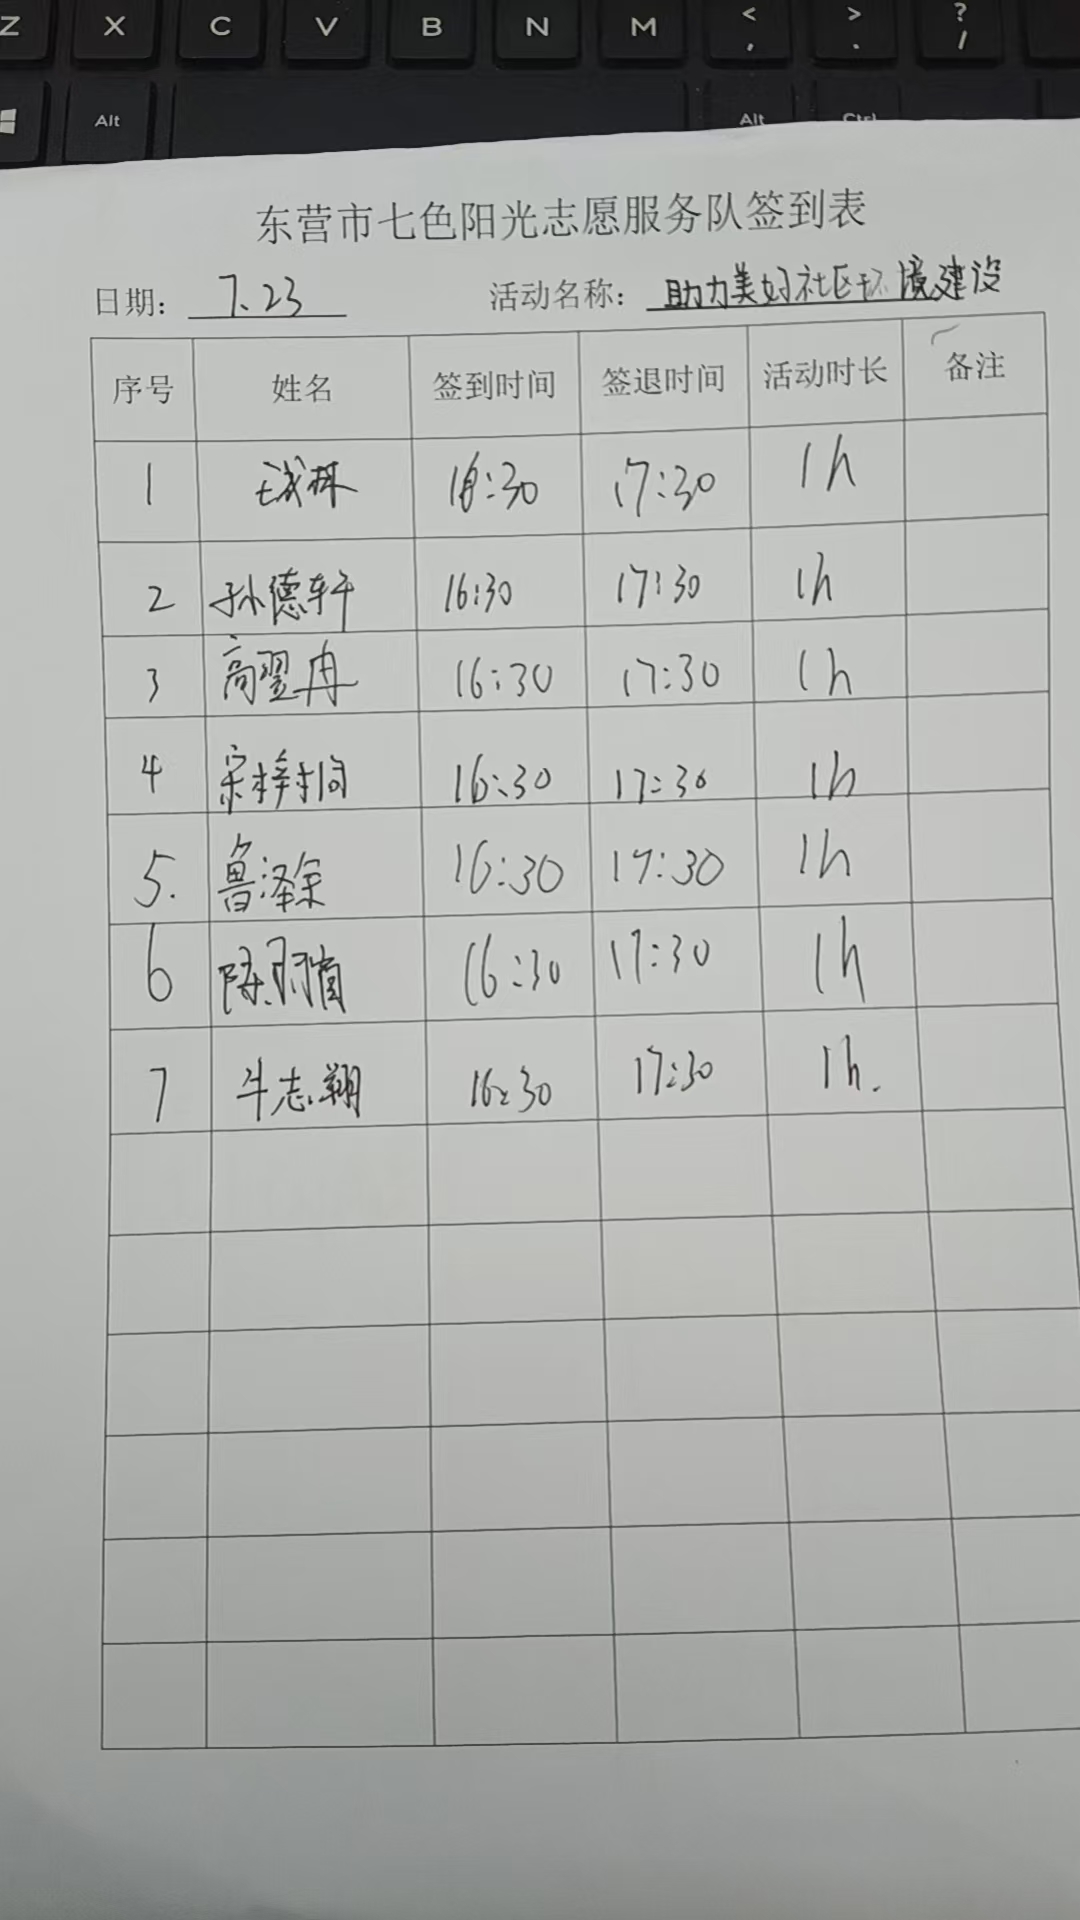 Z X C V B N M < , > . ? /
Alt Alt Ctrl
东营市七色阳光志愿服务队签到表
日期： 7.23 活动名称： 助力美好社区环境建设
序号 姓名 签到时间 签退时间 活动时长 备注
1 16:30 17:30 1h
2 孙德轩 16:30 17:30 1h
3 高翌冉 16:30 17:30 1h
4 宋梓 16:30 17:30 1h
5. 鲁泽 16:30 17:30 1h
6 陈 16:30 17:30 1h
7 牛志翔 16:30 17:30 1h.